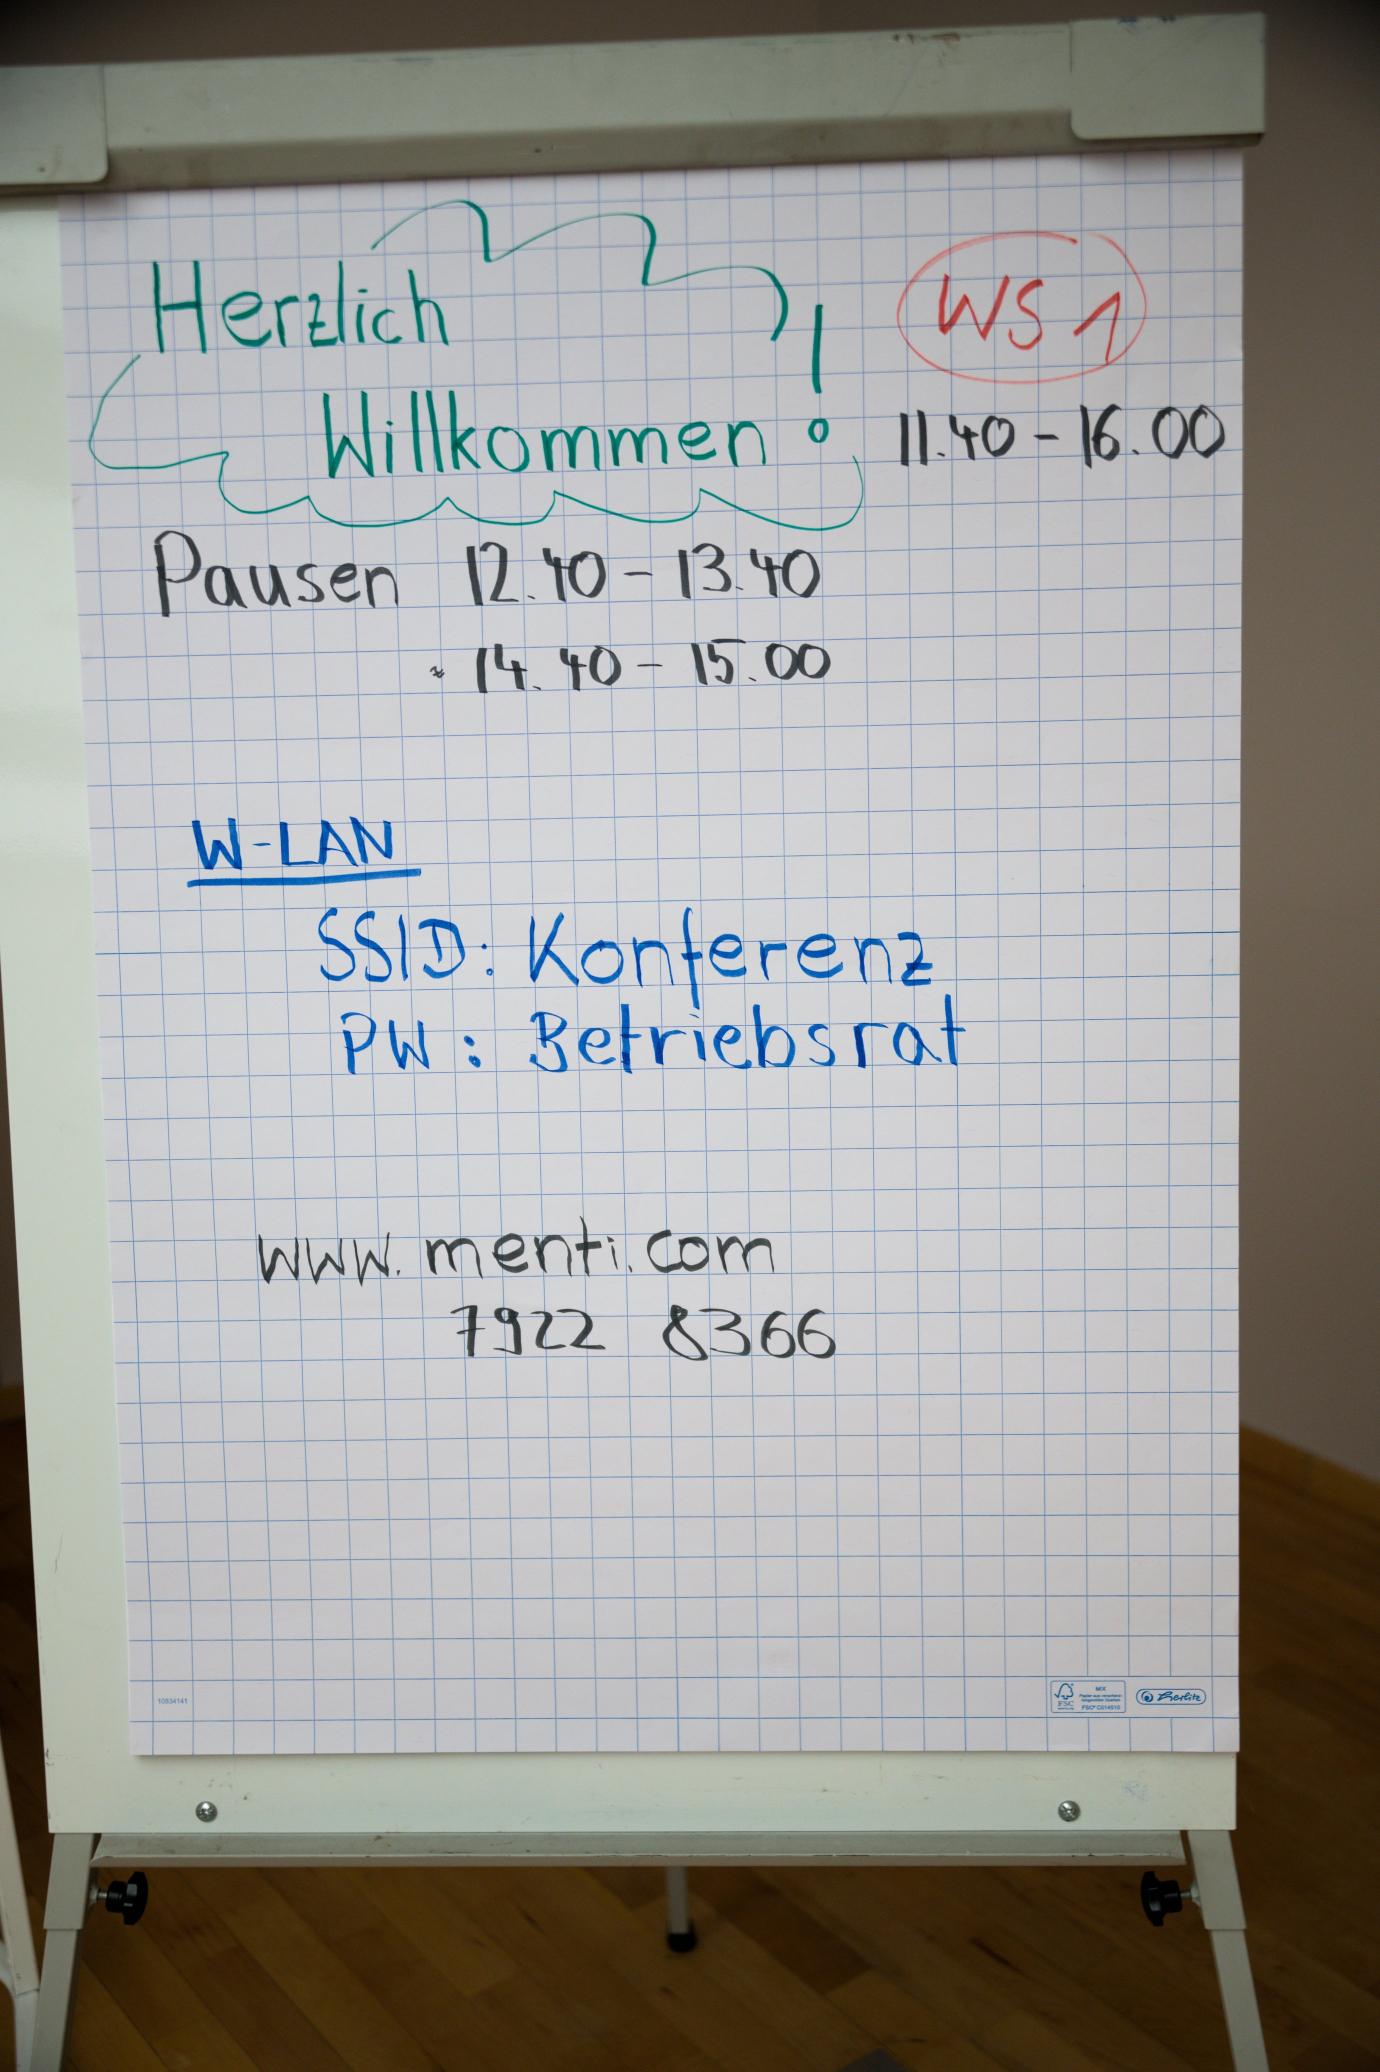 Herzlich
Willkommen!
WS 1
11.40 - 16.00
Pausen 12.40 - 13.40
14.40 - 15.00
W-LAN
SSID: Konferenz
PW: Betriebsrat
www.menti.com
7922 8366
10834141
FSC
MIX
FSC® C014910
Herlitz